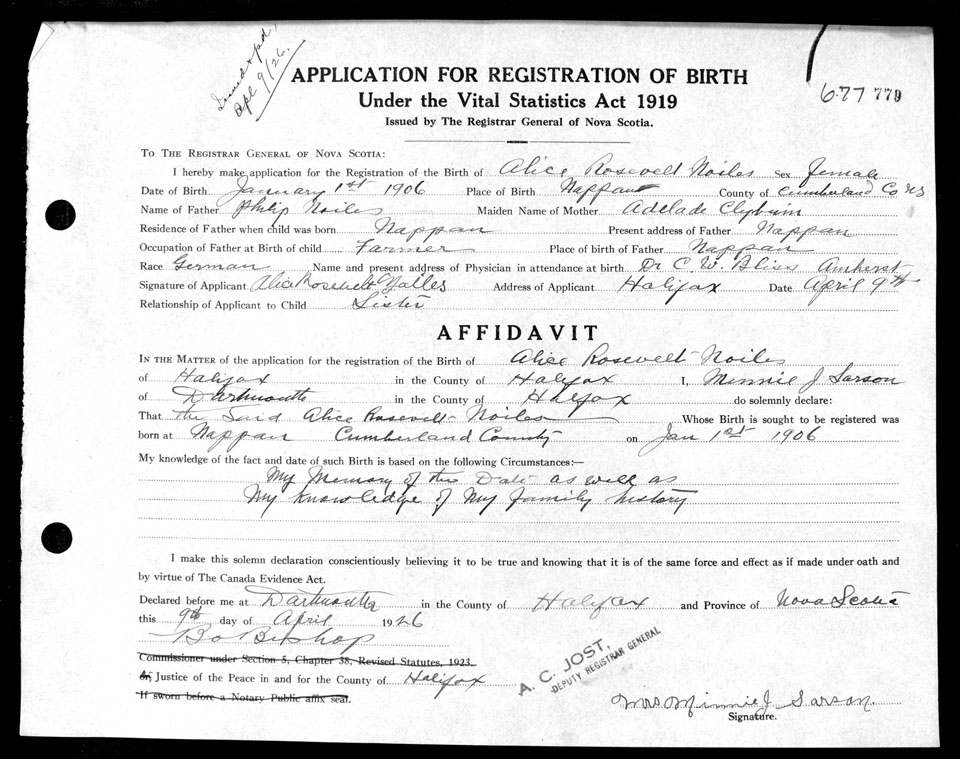 Issued & pd,
Apl 9/26.
APPLICATION FOR REGISTRATION OF BIRTH
Under the Vital Statistics Act 1919
Issued by The Registrar General of Nova Scotia.
677 779
TO THE REGISTRAR GENERAL OF NOVA SCOTIA:
I hereby make application for the Registration of the Birth of Alice Rosevelt Noiles Sex female
Date of Birth January 1st 1906 Place of Birth Nappan County of Cumberland Co NS
Name of Father Philip Noiles Maiden Name of Mother Adelade Clyburn
Residence of Father when child was born Nappan Present address of Father Nappan
Occupation of Father at Birth of child Farmer Place of birth of Father Nappan
Race German Name and present address of Physician in attendance at birth Dr C. W. Bliss Amherst
Signature of Applicant Alice Rosevelt Address of Applicant Halifax Date April 9th
Relationship of Applicant to Child Sister
AFFIDAVIT
IN THE MATTER of the application for the registration of the Birth of Alice Rosevelt Noiles
of Halifax in the County of Halifax I, Minnie J Sarson
of Dartmouth in the County of Halifax do solemnly declare:
That the Said Alice Rosevelt Noiles Whose Birth is sought to be registered was
born at Nappan Cumberland County on Jan 1st 1906
My knowledge of the fact and date of such Birth is based on the following Circumstances:—
My Memory of the Date as well as
My knowledge of My family history
I make this solemn declaration conscientiously believing it to be true and knowing that it is of the same force and effect as if made under oath and
by virtue of The Canada Evidence Act.
Declared before me at Dartmouth in the County of Halifax and Province of Nova Scotia
this 9th day of April 1926
Bishop
Commissioner under Section 5, Chapter 38, Revised Statutes, 1923.
or, Justice of the Peace in and for the County of Halifax
If sworn before a Notary Public affix seal.
A. C. JOST,
DEPUTY REGISTRAR GENERAL
Mrs Minnie J. Sarson.
Signature.